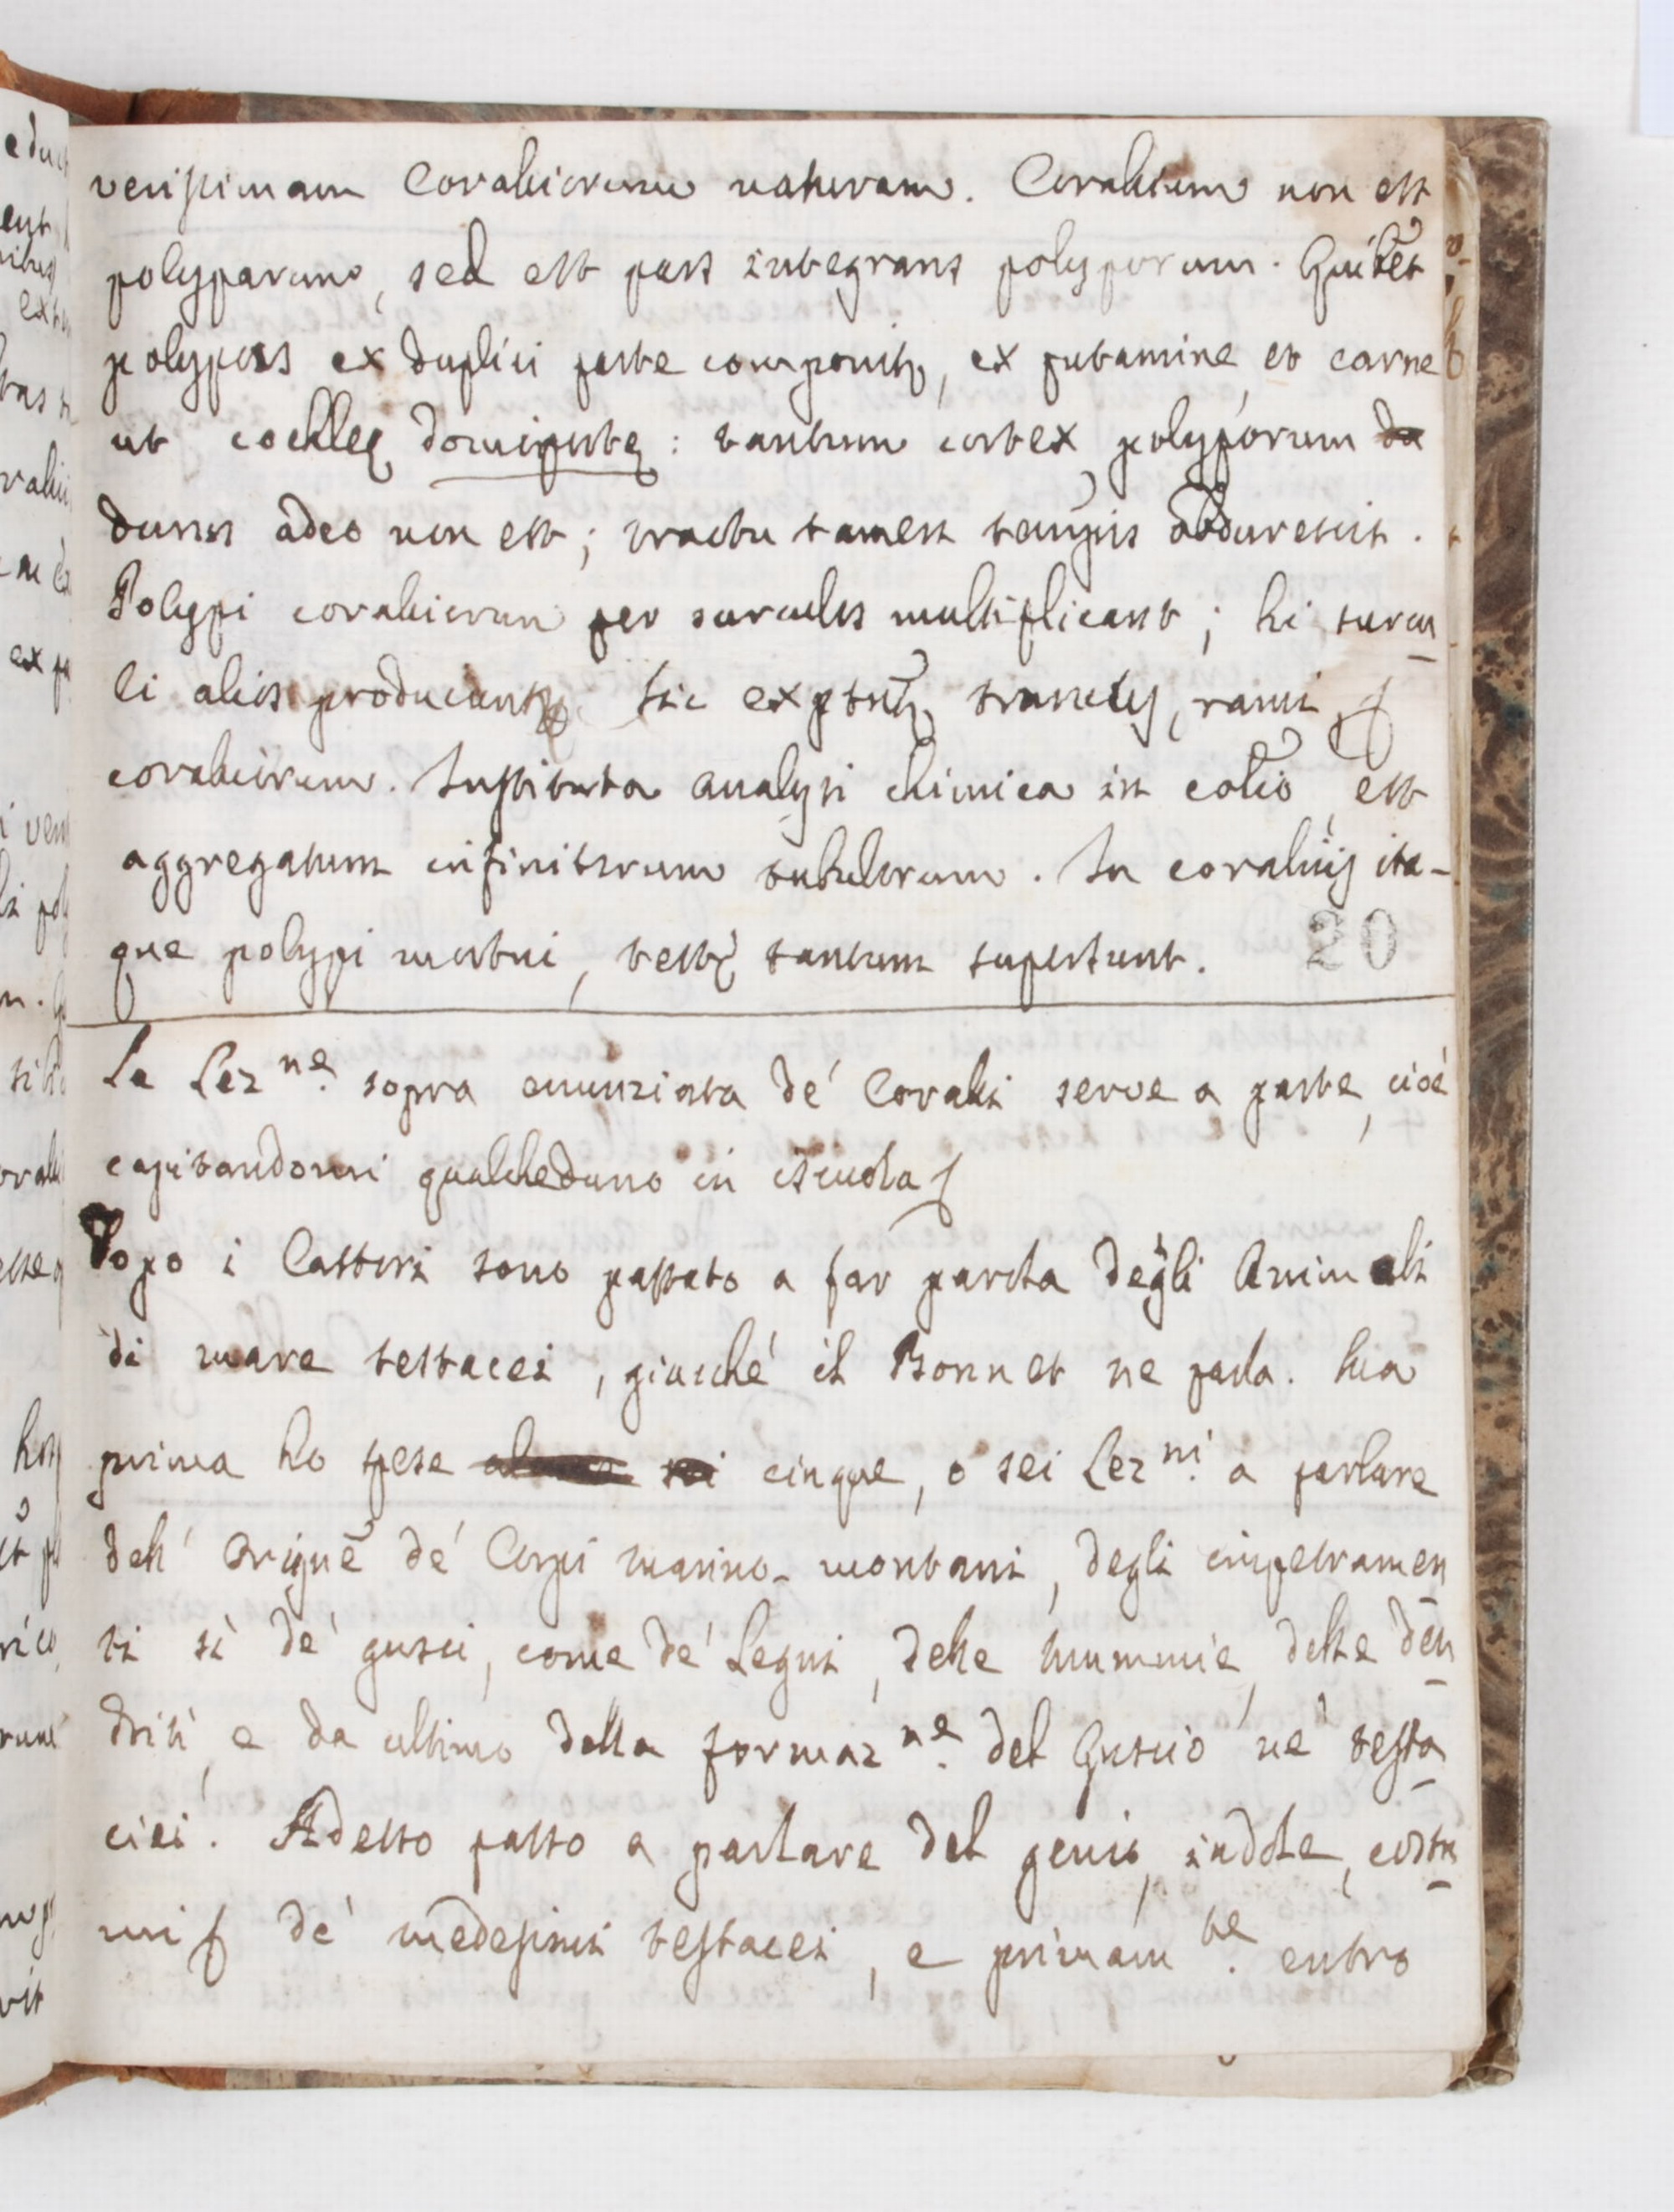 verissimam Coralliorum naturam. Corallium non est
polyparum, sed est pars integrans polyporum. Quilet
polypus ex duplici parte componitr, ex putamine, et carne
ut cochleę domiportę : tantum cortex polyporum da
durus adeo non est ; tractu tamen tempis obdurescit.
Polypi coralliorum per surculos multiplicant ; hi surcu
li alios producunt Sic expltr truncus, rami,
coralliorum. Instituta analysi chimica in coralio, est
aggregatum infinitorum tubulorum. In coraliis ita-
que polypi mortui, testę tantum supersunt. 20
La Lezne. sopra enunziata de' Coralli serve a parte, cioè
capitandomi qualcheduno in iscuola
Dopo i Castori sono passato a far parola degli Animali
di mare testacei, giacché il Bonnet ne parla. Ma
prima ho spese sei cinque, o sei Lezni. a parlare
dell' Origne de' Corpi marino-montani, degli impetramen
ti sì de' gusci, come de' Legni, delle Mummie, delle den
driti, e da ultimo della formazne. del Guscio ne' testa
ciei. Adesso passo a parlare del genio, indole, costu
mi de' medesimi testacei, e primamte. entro